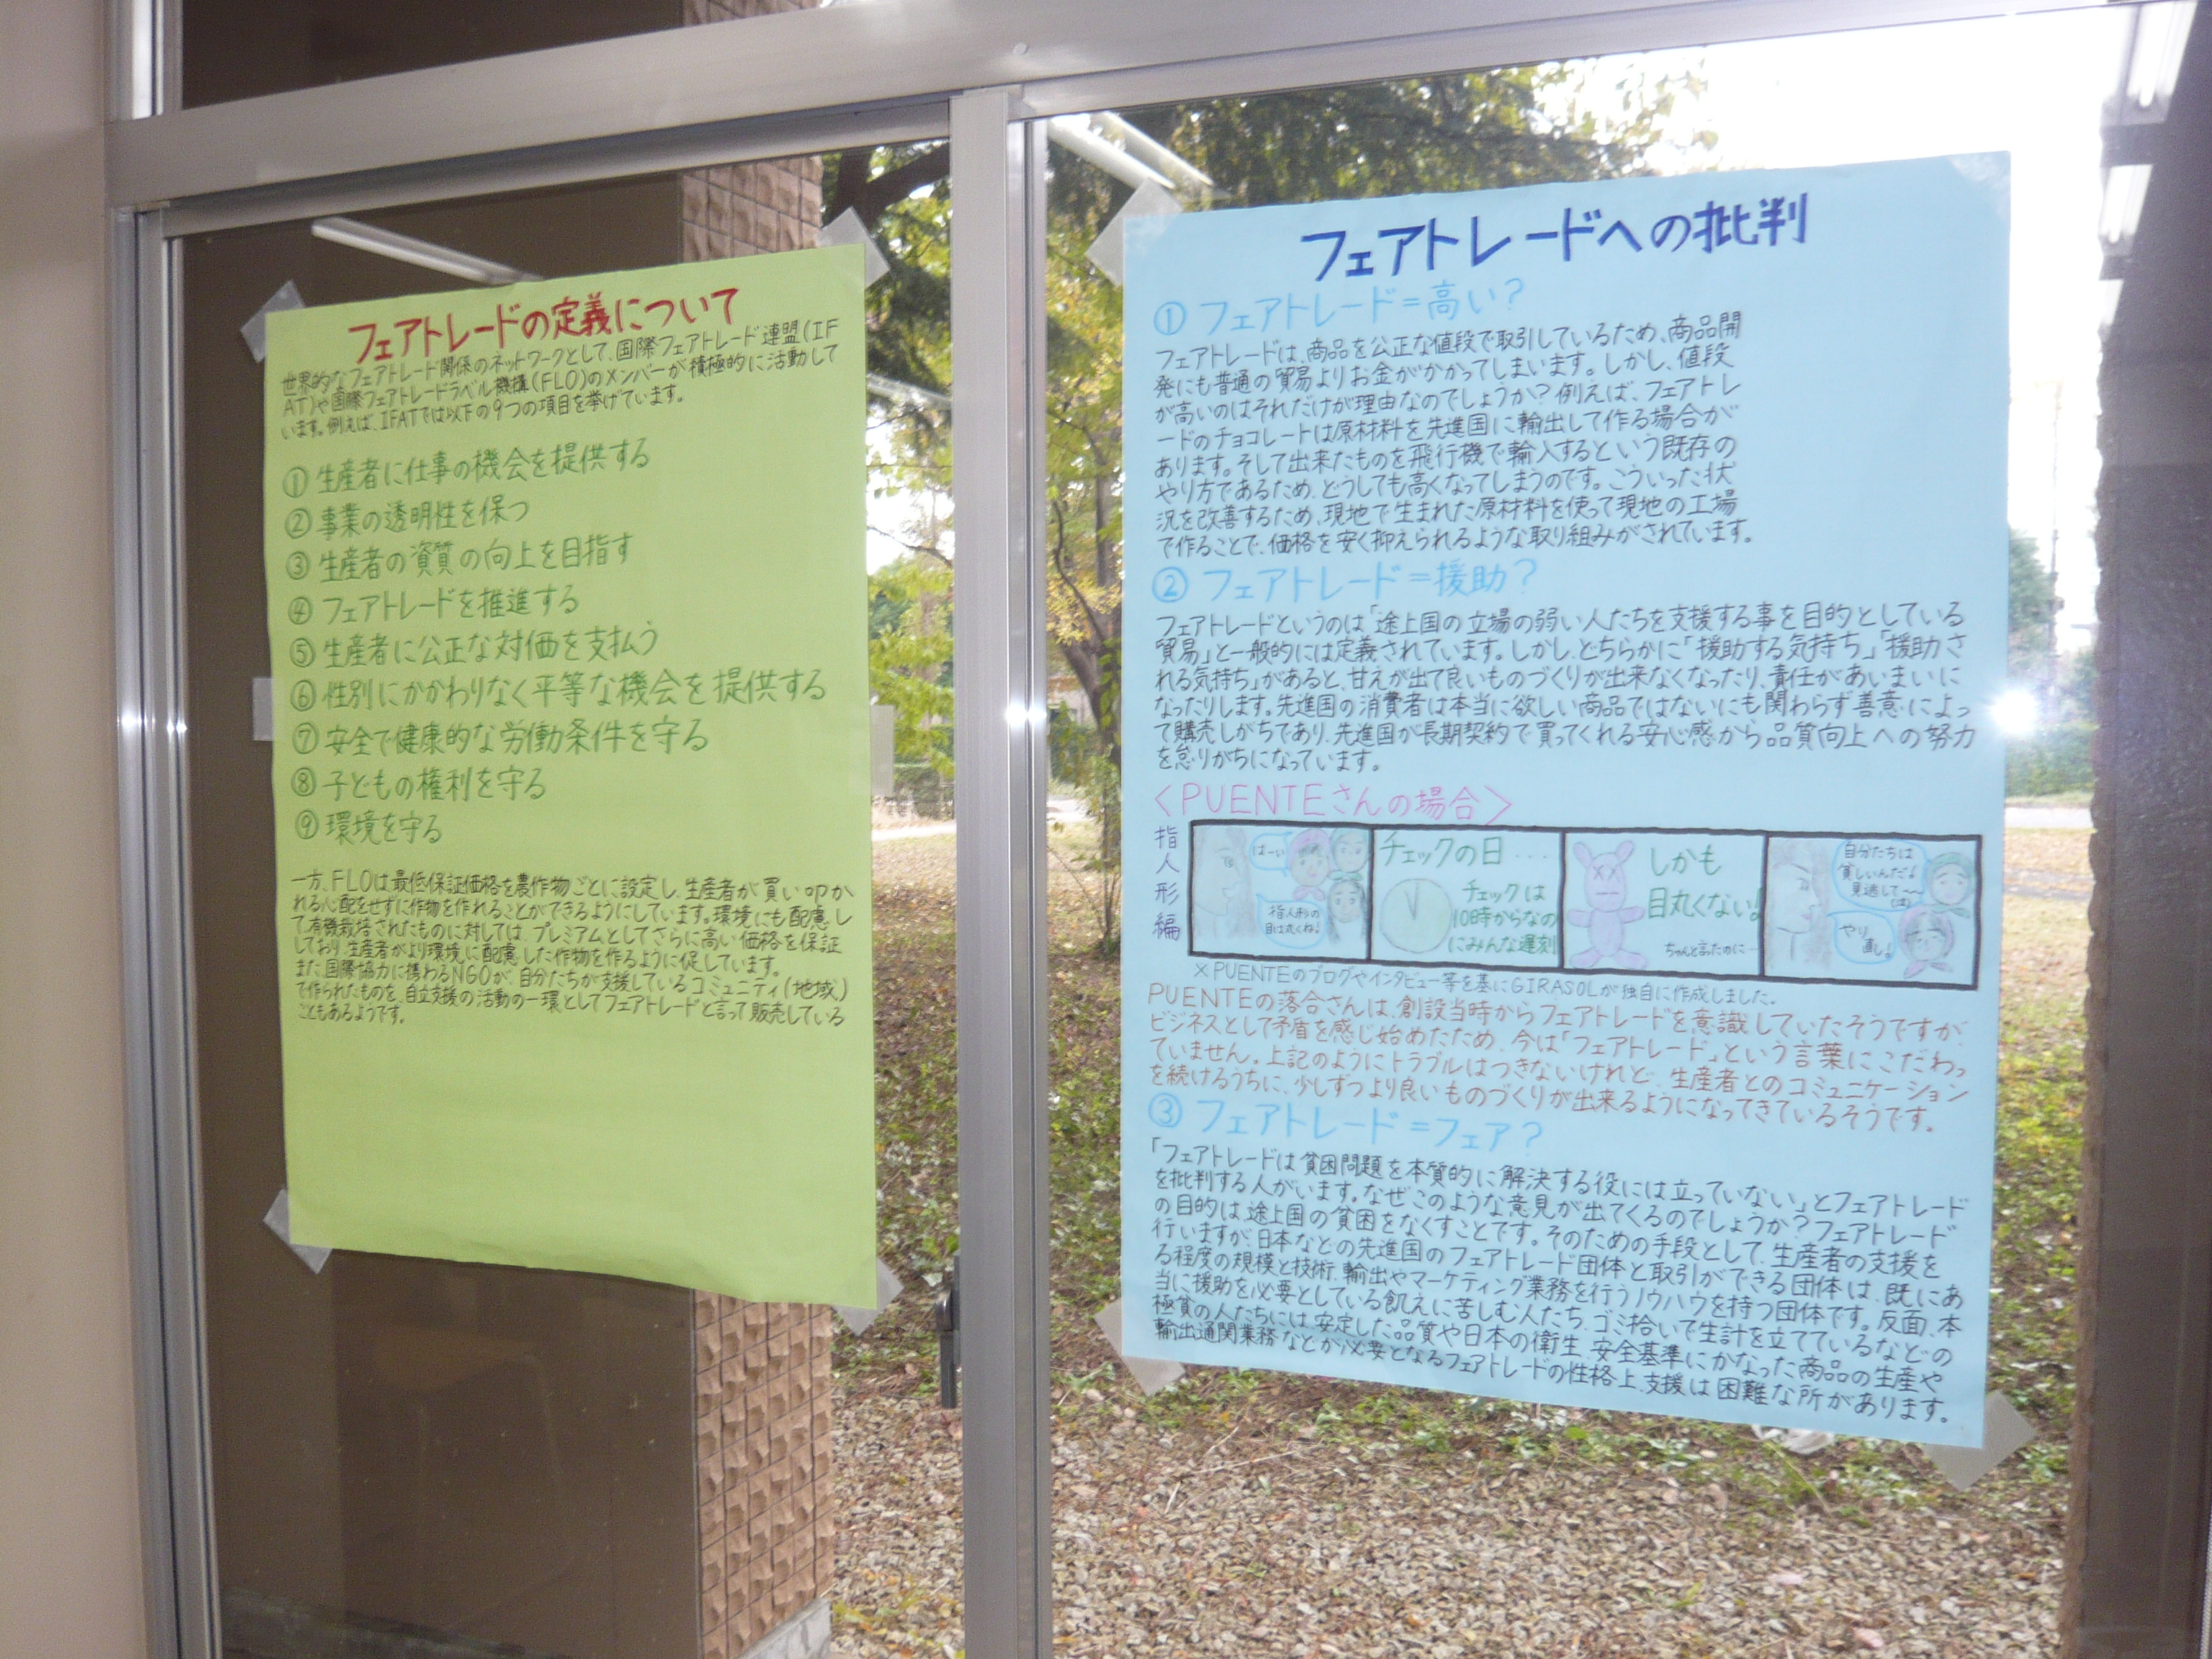 フェアトレードの定義について
世界的なフェアトレード関係のネットワークとして、国際フェアトレード連盟(IF
AT)や国際フェアトレードラベル機構(FLO)のメンバーが積極的に活動して
います。例えば、IFATでは以下の9つの項目を挙げています。
① 生産者に仕事の機会を提供する
② 事業の透明性を保つ
③ 生産者の資質の向上を目指す
④ フェアトレードを推進する
⑤ 生産者に公正な対価を支払う
⑥ 性別にかかわりなく平等な機会を提供する
⑦ 安全で健康的な労働条件を守る
⑧ 子どもの権利を守る
⑨ 環境を守る
一方、FLOは、最低保証価格を農作物ごとに設定し、生産者が買い叩か
れる心配をせずに作物を作れることができるようにしています。環境にも配慮し
て、有機栽培されたものに対しては、プレミアムとしてさらに高い価格を保証
しており、生産者がより環境に配慮した作物を作るように促しています。
また、国際協力に携わるNGOが、自分たちが支援しているコミュニティ(地域)
で作られたものを、自立支援の活動の一環としてフェアトレードと言って販売している
こともあるようです。
フェアトレードへの批判
① フェアトレード=高い?
フェアトレードは、商品を公正な値段で取引しているため、商品開
発にも普通の貿易よりお金がかかってしまいます。しかし、値段
が高いのはそれだけが理由なのでしょうか?例えば、フェアトレ
ードのチョコレートは原材料を先進国に輸出して作る場合が
あります。そして出来たものを飛行機で輸入するという既存の
やり方であるため、どうしても高くなってしまうのです。こういった状
況を改善するため、現地で生まれた原材料を使って現地の工場
で作ることで、価格を安く抑えられるような取り組みがされています。
② フェアトレード=援助?
フェアトレードというのは「途上国の立場の弱い人たちを支援する事を目的としている
貿易」と一般的には定義されています。しかし、どちらかに「援助する気持ち」「援助さ
れる気持ち」があると、甘えが出て良いものづくりが出来なくなったり、責任があいまいに
なったりします。先進国の消費者は本当に欲しい商品ではないにも関わらず善意によっ
て購売しがちであり、先進国が長期契約で買ってくれる安心感から品質向上への努力
を怠りがちになっています。
<PUENTEさんの場合>
指人形編
はーい
指人形の
目は丸くね!
チェックの日...
チェックは
10時からなの
にみんな遅刻
しかも
目丸くない!
ちゃんと言ったのに…
自分たちは
貧しいんだよ
見逃して〜
(泣)
やり
直し!
※PUENTEのブログやインタビュー等を基にGIRASOLが独自に作成しました。
PUENTEの落合さんは、創設当時からフェアトレードを意識していたそうですが、
ビジネスとして矛盾を感じ始めたため、今は「フェアトレード」という言葉にこだわっ
ていません。上記のようにトラブルはつきないけれど、生産者とのコミュニケーション
を続けるうちに、少しずつより良いものづくりが出来るようになってきているそうです。
③ フェアトレード=フェア?
「フェアトレードは貧困問題を本質的に解決する役には立っていない」とフェアトレード
を批判する人がいます。なぜこのような意見が出てくるのでしょうか?フェアトレード
の目的は、途上国の貧困をなくすことです。そのための手段として、生産者の支援を
行いますが、日本などの先進国のフェアトレード団体と取引ができる団体は、既にあ
る程度の規模と技術、輸出やマーケティング業務を行うノウハウを持つ団体です。反面、本
当に援助を必要としている飢えに苦しむ人たち、ゴミ拾いで生計を立てているなどの
極貧の人たちには、安定した品質や日本の衛生、安全基準にかなった商品の生産や
輸出通関業務などが必要となるフェアトレードの性格上、支援は困難な所があります。